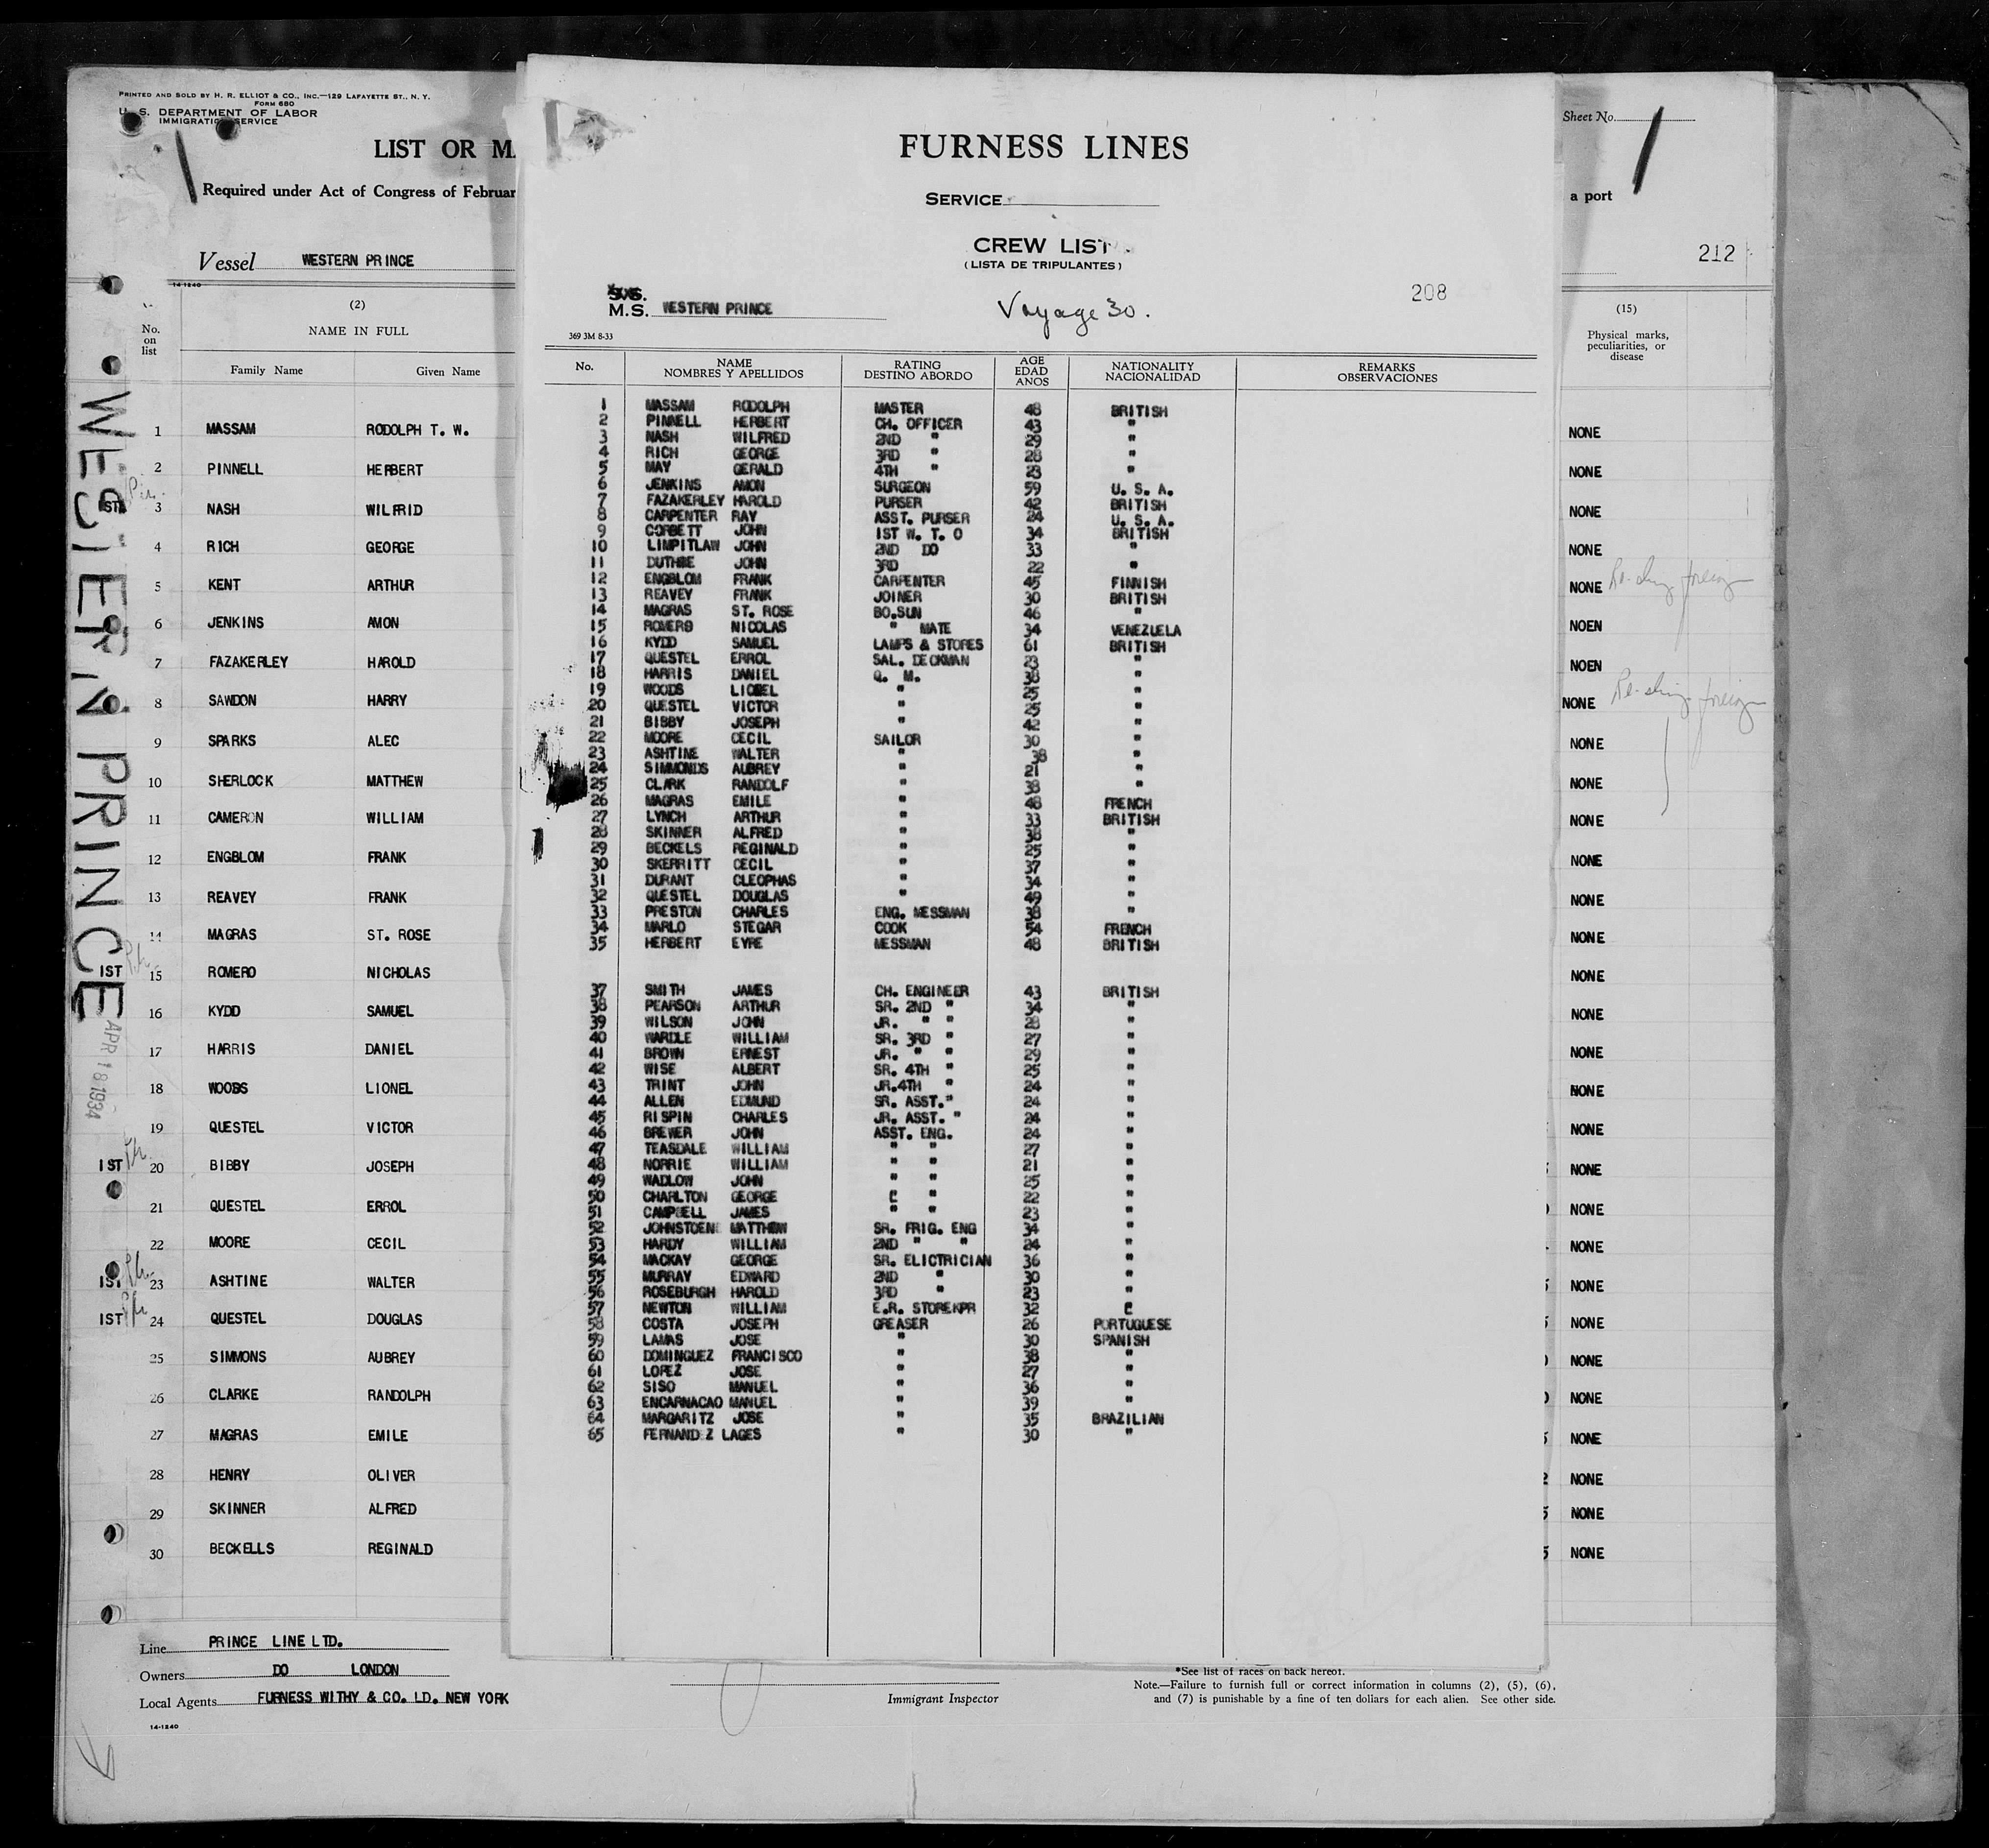 PRINTED AND SOLD BY H. R. ELLIOT & CO., INC.—129 LAFAYETTE ST., N. Y.
FORM 680
U. S. DEPARTMENT OF LABOR
IMMIGRATION SERVICE
LIST OR MA
Required under Act of Congress of Februar
Vessel WESTERN PRINCE
14-1240
(2)
No. on list
NAME IN FULL
Family Name Given Name
1 MASSAM RODOLPH T. W.
2 PINNELL HERBERT
IST 3 NASH WILFRID
4 RICH GEORGE
5 KENT ARTHUR
6 JENKINS AMON
7 FAZAKERLEY HAROLD
8 SAWDON HARRY
9 SPARKS ALEC
10 SHERLOCK MATTHEW
11 CAMERON WILLIAM
12 ENGBLOM FRANK
13 REAVEY FRANK
14 MAGRAS ST. ROSE
IST 15 ROMERO NICHOLAS
16 KYDD SAMUEL
17 HARRIS DANIEL
18 WOODS LIONEL
19 QUESTEL VICTOR
IST 20 BIBBY JOSEPH
21 QUESTEL ERROL
22 MOORE CECIL
IST 23 ASHTINE WALTER
IST 24 QUESTEL DOUGLAS
25 SIMMONS AUBREY
26 CLARKE RANDOLPH
27 MAGRAS EMILE
28 HENRY OLIVER
29 SKINNER ALFRED
30 BECKELLS REGINALD
WESTERN PRINCE
APR 18 1934
Line PRINCE LINE LTD.
Owners DO LONDON
Local Agents FURNESS WITHY & CO. LD. NEW YORK
14-1240
FURNESS LINES
SERVICE
CREW LIST
(LISTA DE TRIPULANTES)
S.S.
M.S. WESTERN PRINCE Voyage 30. 208
369 3M 8-33
No. NAME RATING AGE NATIONALITY REMARKS
NOMBRES Y APELLIDOS DESTINO ABORDO EDAD ANOS NACIONALIDAD OBSERVACIONES
1 MASSAM RODOLPH MASTER 48 BRITISH
2 PINNELL HERBERT CH. OFFICER 43 "
3 NASH WILFRED 2ND " 29 "
4 RICH GEORGE 3RD " 28 "
5 MAY GERALD 4TH " 23 "
6 JENKINS AMON SURGEON 59 U. S. A.
7 FAZAKERLEY HAROLD PURSER 42 BRITISH
8 CARPENTER RAY ASST. PURSER 24 U. S. A.
9 CORBETT JOHN 1ST W. T. O 34 BRITISH
10 LIMPITLAW JOHN 2ND DO 33 "
11 DUTHIE JOHN 3RD 22 "
12 ENGBLOM FRANK CARPENTER 45 FINNISH
13 REAVEY FRANK JOINER 30 BRITISH
14 MAGRAS ST. ROSE BO.SUN 46 "
15 ROMERO NICOLAS " MATE 34 VENEZUELA
16 KYDD SAMUEL LAMPS & STORES 61 BRITISH
17 QUESTEL ERROL SAL. DECKMAN 23 "
18 HARRIS DANIEL Q. M. 38 "
19 WOODS LIONEL " 25 "
20 QUESTEL VICTOR " 25 "
21 BIBBY JOSEPH " 42 "
22 MOORE CECIL SAILOR 30 "
23 ASHTINE WALTER " 38 "
24 SIMMONDS AUBREY " 21 "
25 CLARK RANDOLF " 38 "
26 MAGRAS EMILE " 48 FRENCH
27 LYNCH ARTHUR " 33 BRITISH
28 SKINNER ALFRED " 38 "
29 BECKELS REGINALD " 25 "
30 SKERRITT CECIL " 37 "
31 DURANT CLEOPHAS " 34 "
32 QUESTEL DOUGLAS " 49 "
33 PRESTON CHARLES ENG. MESSMAN 38 "
34 MARLO STEGAR COOK 54 FRENCH
35 HERBERT EYRE MESSMAN 48 BRITISH
37 SMITH JAMES CH. ENGINEER 43 BRITISH
38 PEARSON ARTHUR SR. 2ND " 34 "
39 WILSON JOHN JR. " " 28 "
40 WARDLE WILLIAM SR. 3RD " 27 "
41 BROWN ERNEST JR. " " 29 "
42 WISE ALBERT SR. 4TH " 25 "
43 TRINT JOHN JR.4TH " 24 "
44 ALLEN EDMUND SR. ASST." 24 "
45 RISPIN CHARLES JR. ASST. " 24 "
46 BREWER JOHN ASST. ENG. 24 "
47 TEASDALE WILLIAM " " 27 "
48 NORRIE WILLIAM " " 21 "
49 WADLOW JOHN " " 25 "
50 CHARLTON GEORGE " " 22 "
51 CAMPBELL JAMES " " 23 "
52 JOHNSTOENE MATTHEW SR. FRIG. ENG 34 "
53 HARDY WILLIAM 2ND " " 24 "
54 MACKAY GEORGE SR. ELICTRICIAN 36 "
55 MURRAY EDWARD 2ND " 30 "
56 ROSEBURGH HAROLD 3RD " 23 "
57 NEWTON WILLIAM E.R. STOREKPR 32 "
58 COSTA JOSEPH GREASER 26 PORTUGUESE
59 LAMAS JOSE " 30 SPANISH
60 DOMINGUEZ FRANCISCO " 38 "
61 LOPEZ JOSE " 27 "
62 SISO MANUEL " 36 "
63 ENCARNACAO MANUEL " 39 "
64 MARGARITZ JOSE " 35 BRAZILIAN
65 FERNANDEZ LAGES " 30 "
Sheet No.
a port
212
(15)
Physical marks, peculiarities, or disease
NONE
NONE
NONE
NONE
NONE
NOEN
NOEN
NONE
NONE
NONE
NONE
NONE
NONE
NONE
NONE
NONE
NONE
NONE
NONE
NONE
NONE
NONE
NONE
NONE
NONE
NONE
NONE
NONE
NONE
NONE
Immigrant Inspector
*See list of races on back hereof.
Note.—Failure to furnish full or correct information in columns (2), (5), (6),
and (7) is punishable by a fine of ten dollars for each alien. See other side.